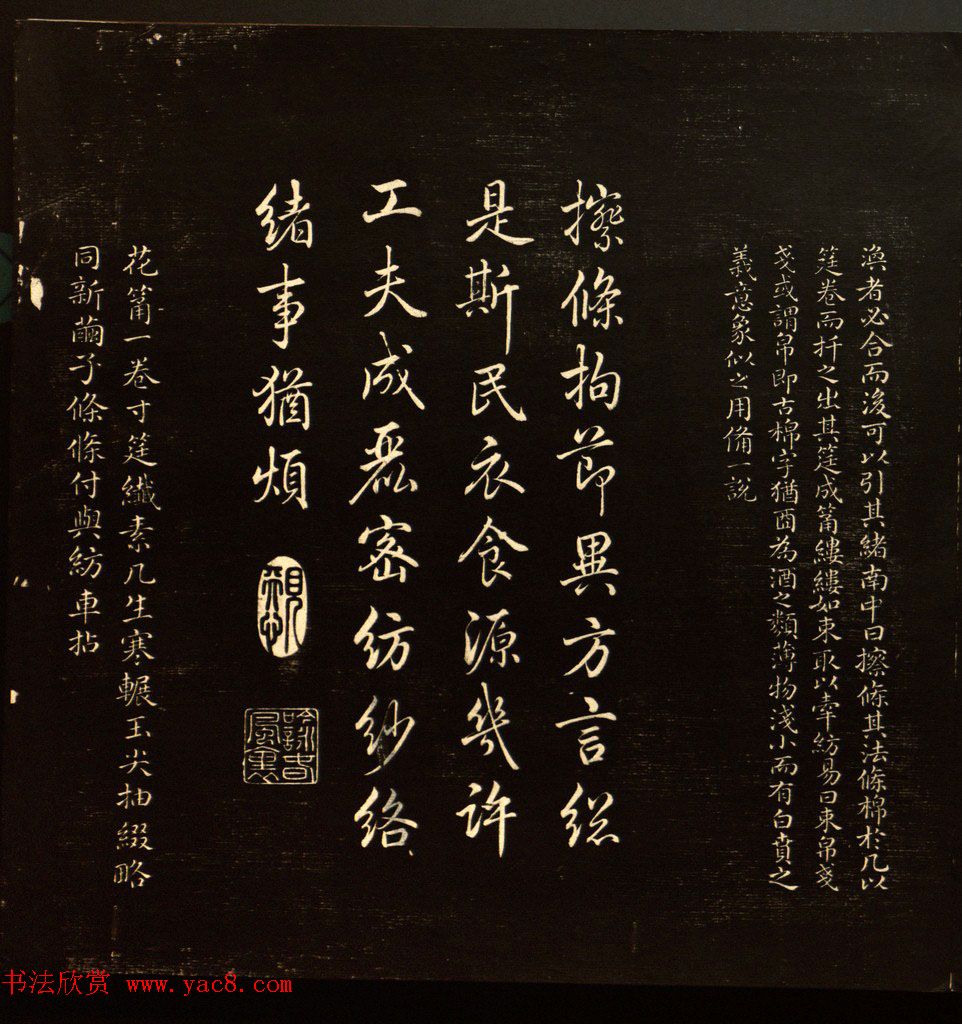 渙者必合而後可以引其緒南中曰擦條其法條棉於几以
筳卷而扞之出其筳成筩縷縷如束取以牽紡易曰束帛戔
戔或謂帛即古棉字猶酉為酒之類薄物淺小而有白賁之
義意象似之用備一說
擦條拘節異方言總
是斯民衣食源幾許
工夫成麤密紡紗絡
緒事猶煩
吟詠春風裏
花筩一卷寸筳纖素几生寒輾玉尖抽綴略
同新繭子條條付與紡車拈
书法欣赏 www.yac8.com